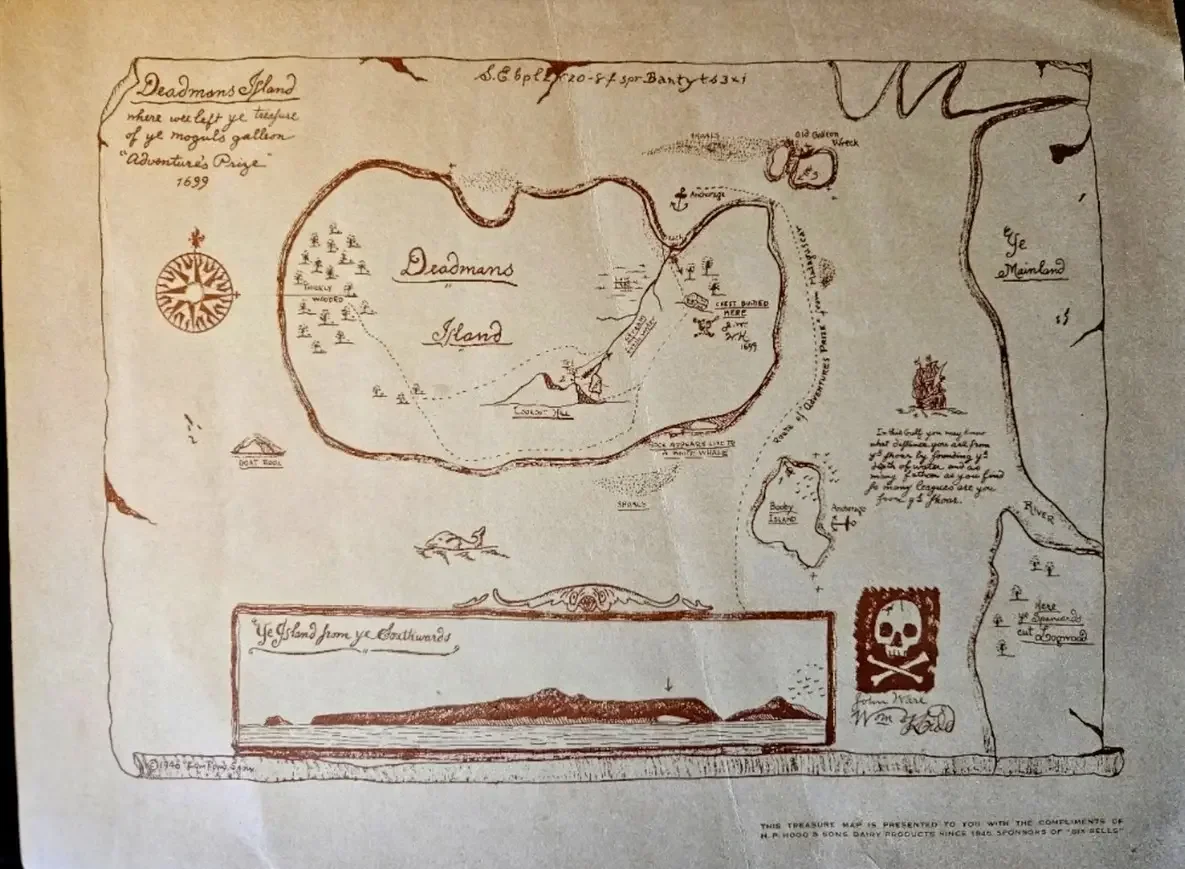 Deadmans Island
where wee left ye treasure
of ye moguls galleon
"Adventure's Prize"
1699
Shoals
Old Galleon
Wreck
Anchorage
Ye
Mainland
Deadmans
Island
Thickly
Wooded
Chest Buried
Here
J.W.
W.K.
1699
Stream
Lookout Hill
Route of "Adventures Prize" from Madagascar
Rock appears like to
a white whale
Boat Rock
Shoals
In this Gulf you may know
what distance you are from
ye shoar by sounding ye
depth of water and as
many fathom as you find
so many leagues are you
from ye shoar.
Booby
Island
Anchorage
River
Here
ye Spaniards
cut Logwood
Ye Island from ye Southwards
John Ware
Wm Kidd
© 1946
THIS TREASURE MAP IS PRESENTED TO YOU WITH THE COMPLIMENTS OF
H. P. HOOD & SONS DAIRY PRODUCTS SINCE 1846, SPONSORS OF "SIX BELLS"